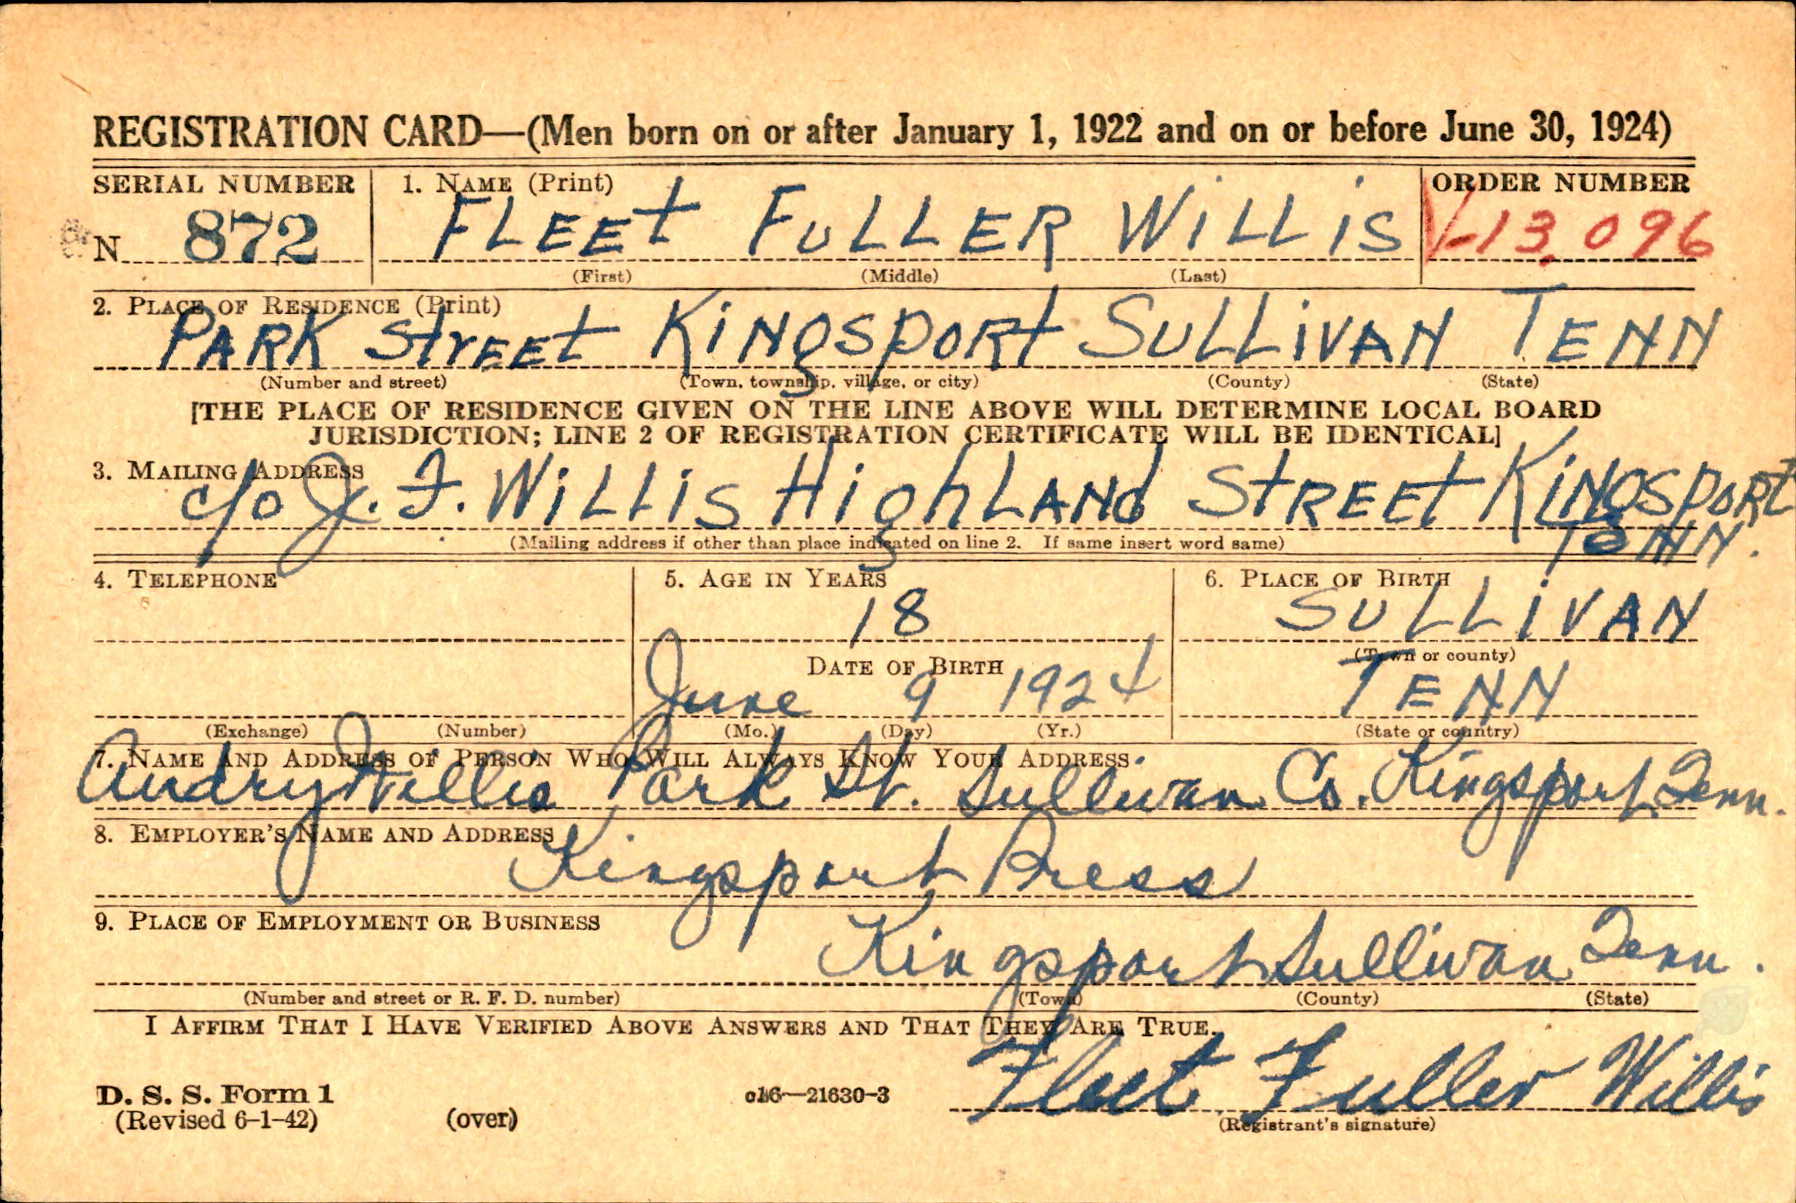 REGISTRATION CARD—(Men born on or after January 1, 1922 and on or before June 30, 1924)
SERIAL NUMBER 1. NAME (Print) ORDER NUMBER
N 872 FLEET FULLER WILLIS 13,096
(First) (Middle) (Last)
2. PLACE OF RESIDENCE (Print)
PARK STREET KINGSPORT SULLIVAN TENN
(Number and street) (Town, township, village, or city) (County) (State)
[THE PLACE OF RESIDENCE GIVEN ON THE LINE ABOVE WILL DETERMINE LOCAL BOARD
JURISDICTION; LINE 2 OF REGISTRATION CERTIFICATE WILL BE IDENTICAL]
3. MAILING ADDRESS
c/o J. F. WILLIS HIGHLAND STREET KINGSPORT
TENN.
(Mailing address if other than place indicated on line 2. If same insert word same)
4. TELEPHONE 5. AGE IN YEARS 6. PLACE OF BIRTH
18 SULLIVAN
DATE OF BIRTH (Town or county)
June 9 1924 TENN
(Exchange) (Number) (Mo.) (Day) (Yr.) (State or country)
7. NAME AND ADDRESS OF PERSON WHO WILL ALWAYS KNOW YOUR ADDRESS
Audry Willis Park St. Sullivan Co. Kingsport Tenn.
8. EMPLOYER'S NAME AND ADDRESS
Kingsport Press
9. PLACE OF EMPLOYMENT OR BUSINESS
Kingsport Sullivan Tenn.
(Number and street or R. F. D. number) (Town) (County) (State)
I AFFIRM THAT I HAVE VERIFIED ABOVE ANSWERS AND THAT THEY ARE TRUE.
Fleet Fuller Willis
D. S. S. Form 1 16—21630-3
(Revised 6-1-42) (over) (Registrant's signature)